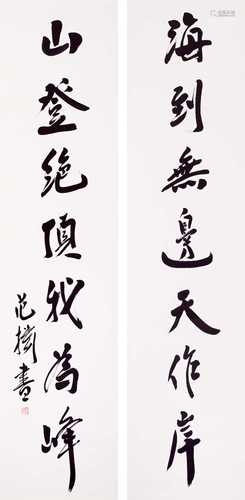 海到無邊天作岸
山登绝頂我為峰
范撝書